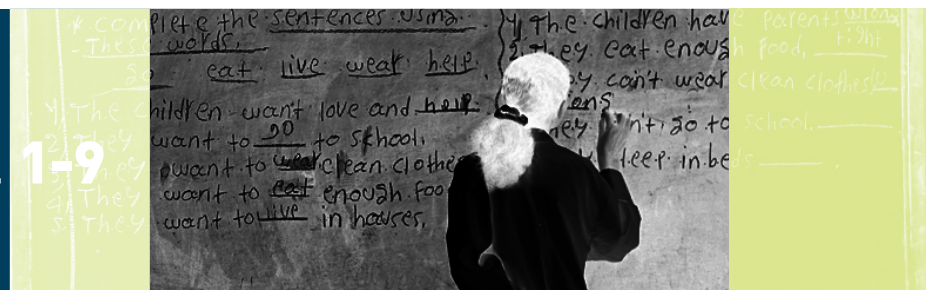 * complete the sentences using
- These words.
go eat live wear help.
1/ The children want love and help.
2/ They want to go to school.
want to wear clean clothe
4/ They want to eat enough foo
5/ They want to live in houses.
1-9
1/ The children have parents wrong
right
2. They eat enough food,
can't wear clean clothes
ens
go to school.
sleep in beds